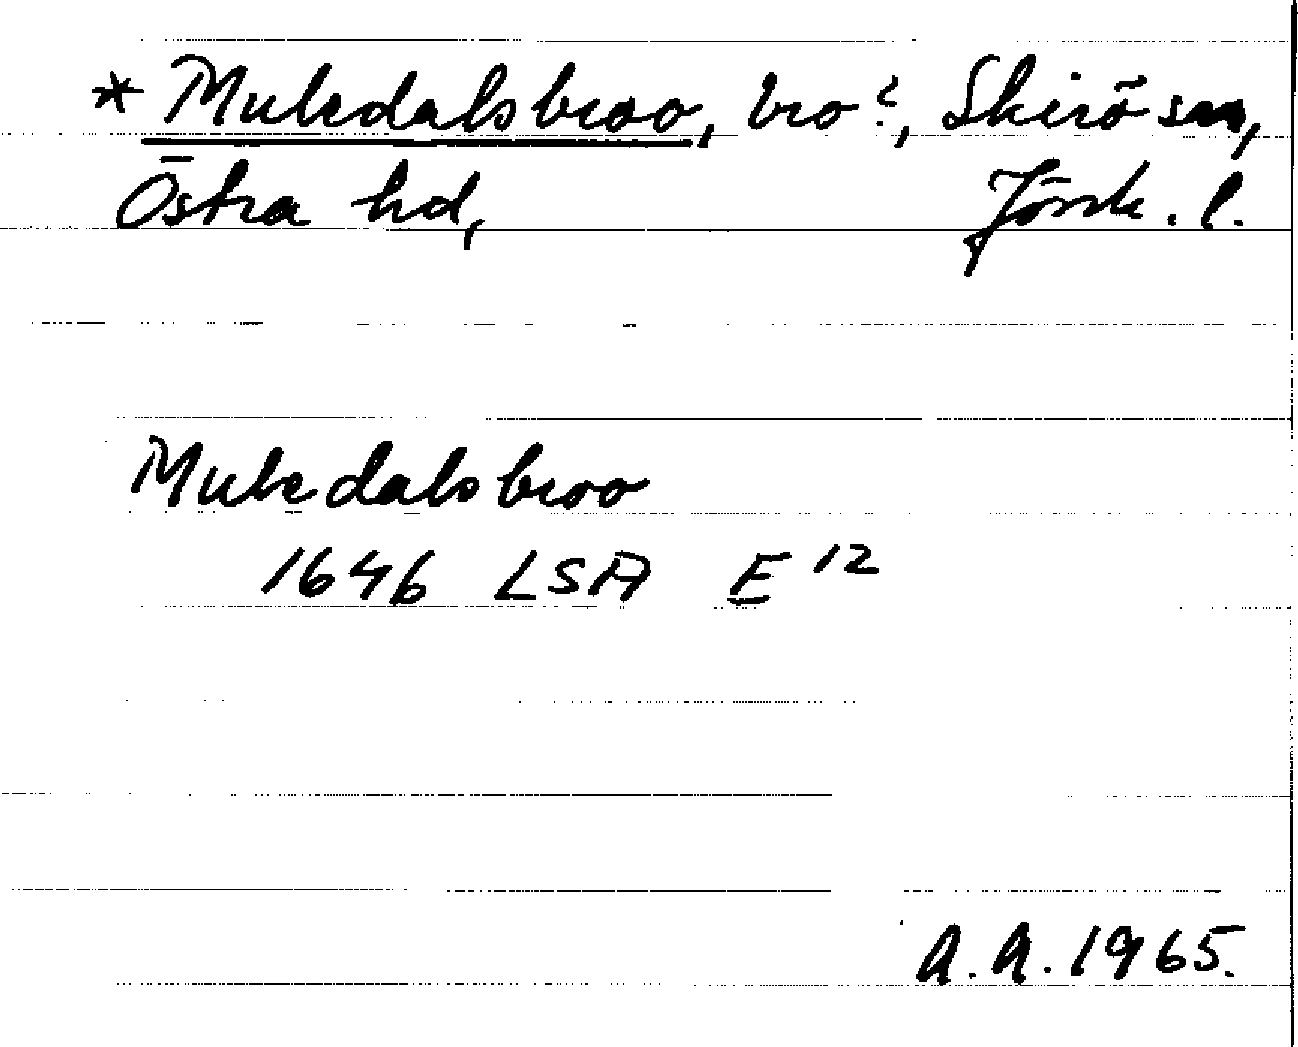 * Mulsdalsbroo, bro?, Skirö sn,
Östra hd, Jönk. l.
Mulsdalsbroo
1646 LSA E 12
A.A. 1965.